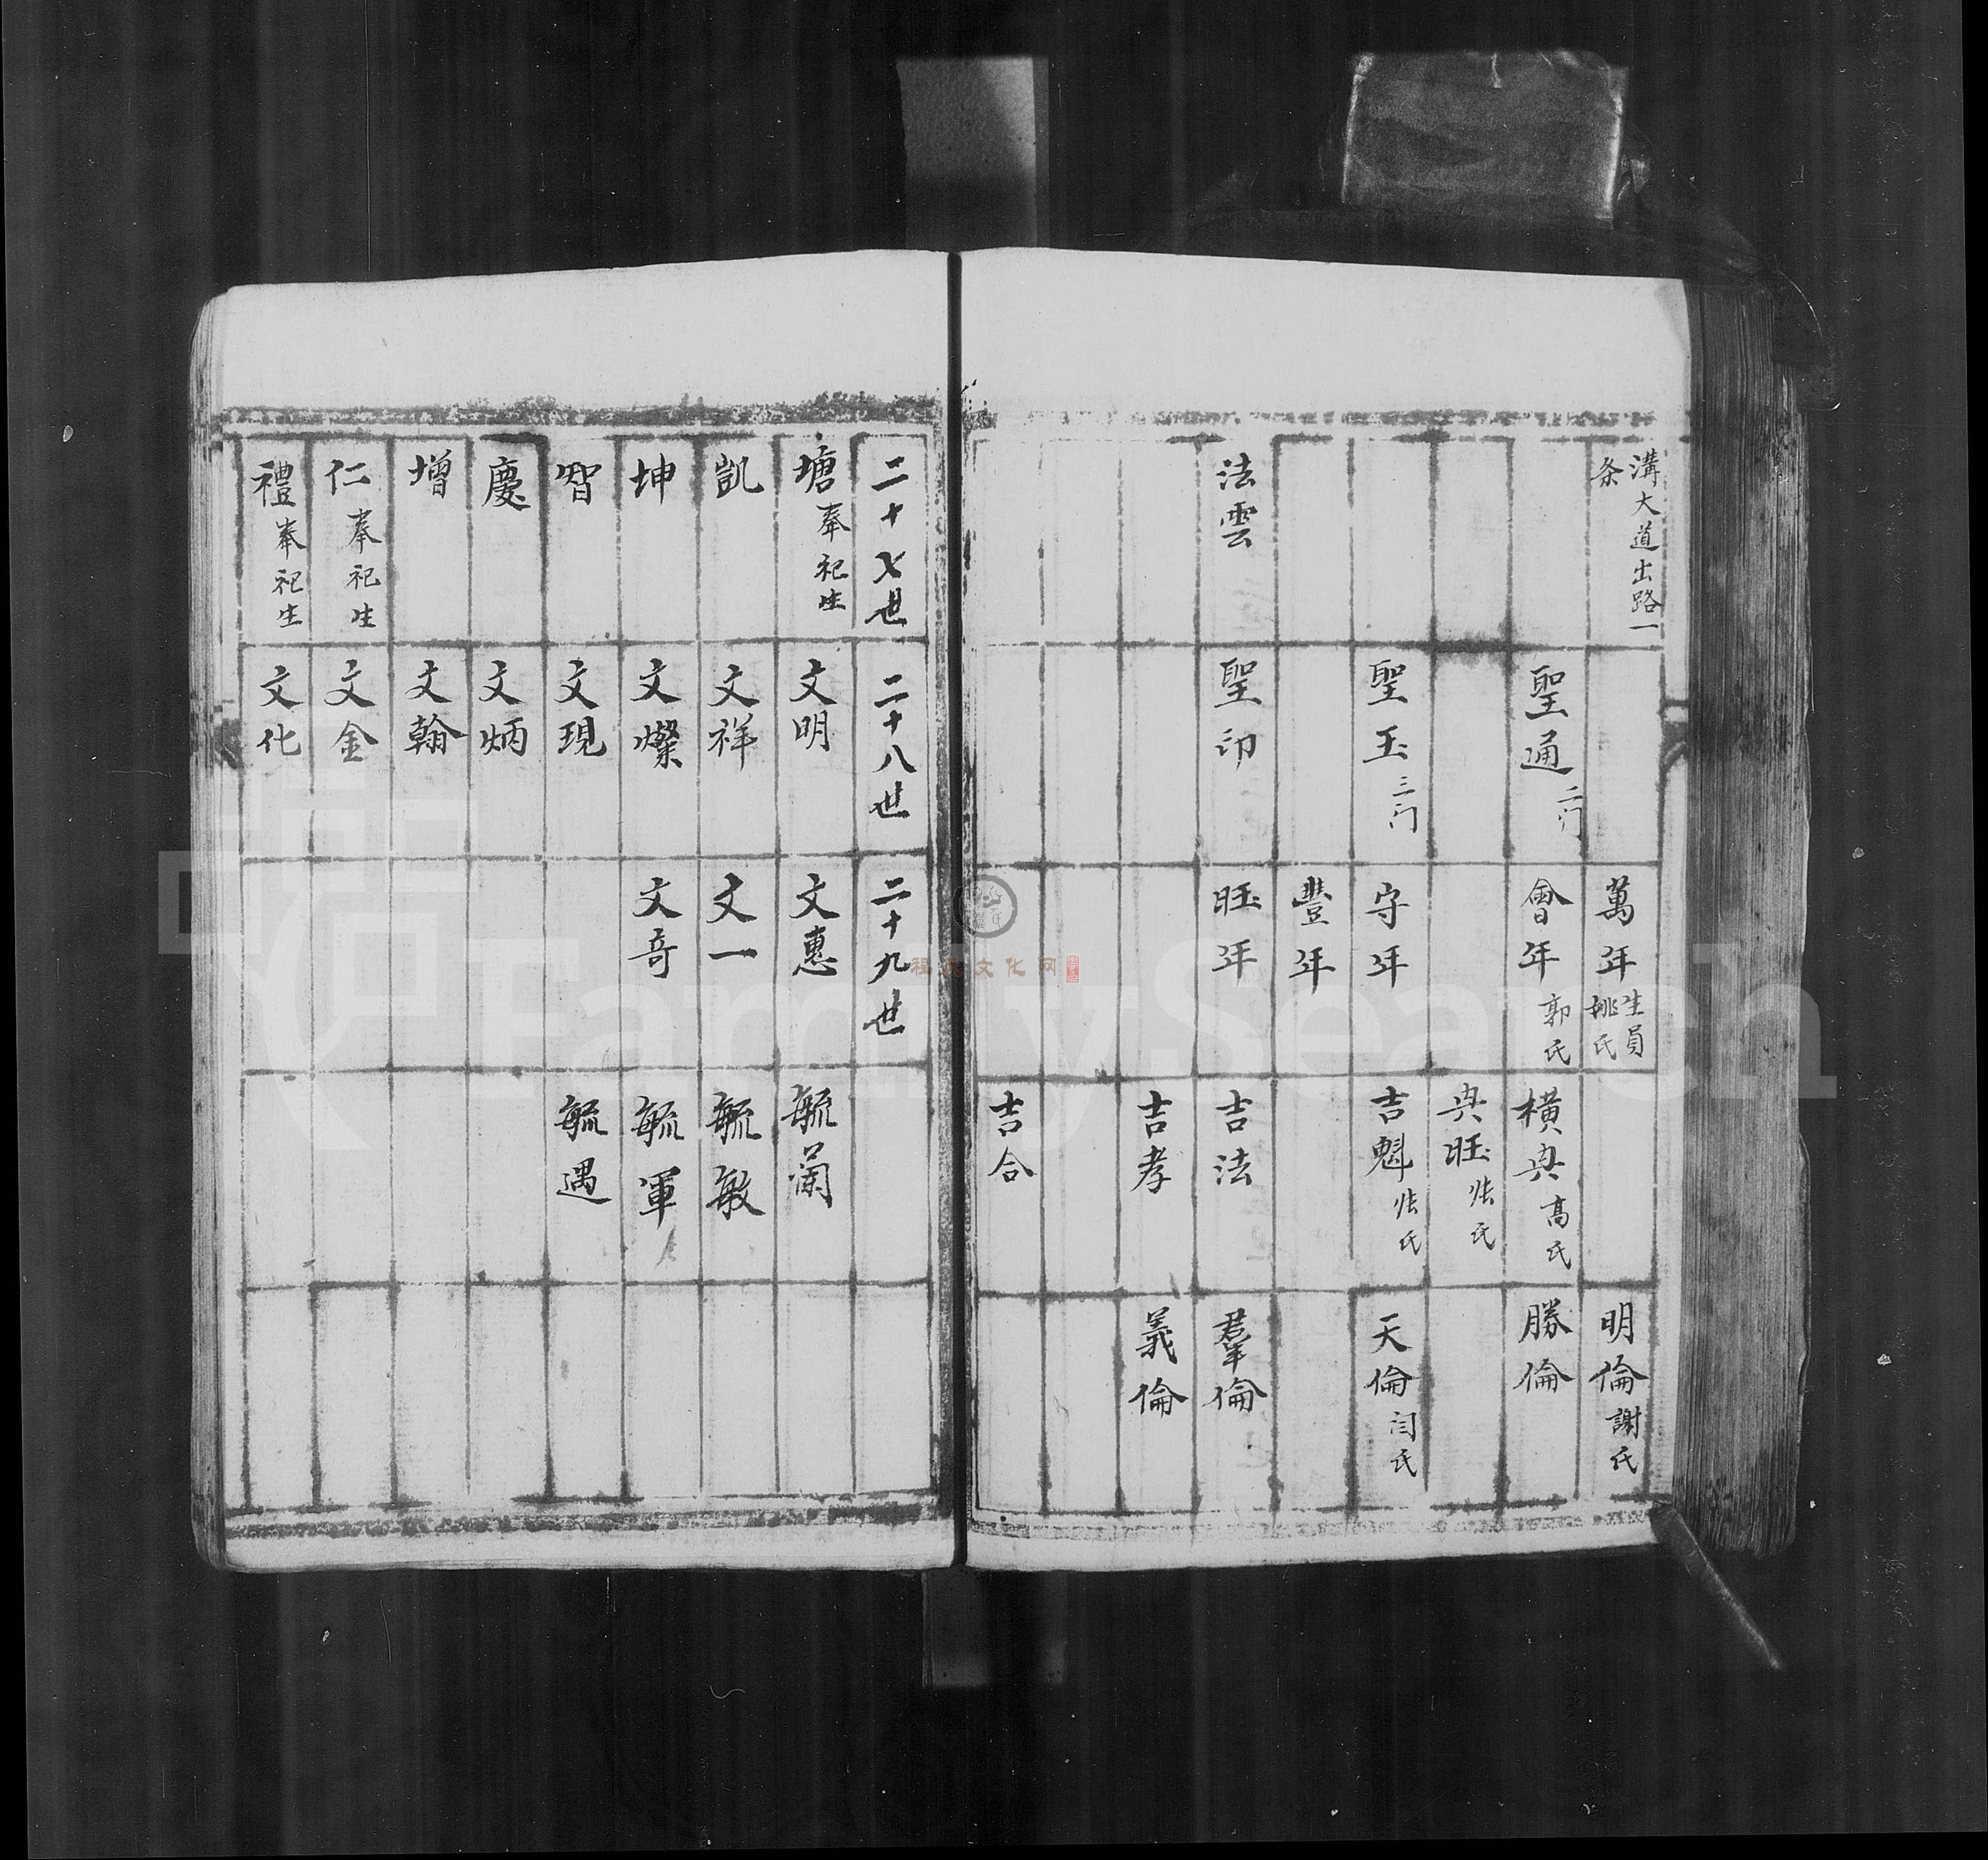 溝大道出路一
条
萬年 生員
姚氏
明倫 謝氏
聖通 二门
會年 郭氏
横典 高氏
勝倫
典旺 张氏
聖玉 三门
守年
吉魁 张氏
天倫 闫氏
豐年
法雲
聖印
旺年
吉法
羣倫
吉孝
義倫
吉合
二十七世
二十八世
二十九世
塘 奉祀生
文明
文惠
毓蘭
凱
文祥
文一
毓敏
坤
文燦
文奇
毓軍
智
文現
毓遇
慶
文炳
增
文翰
仁 奉祀生
文金
禮 奉祀生
文化
FamilySearch